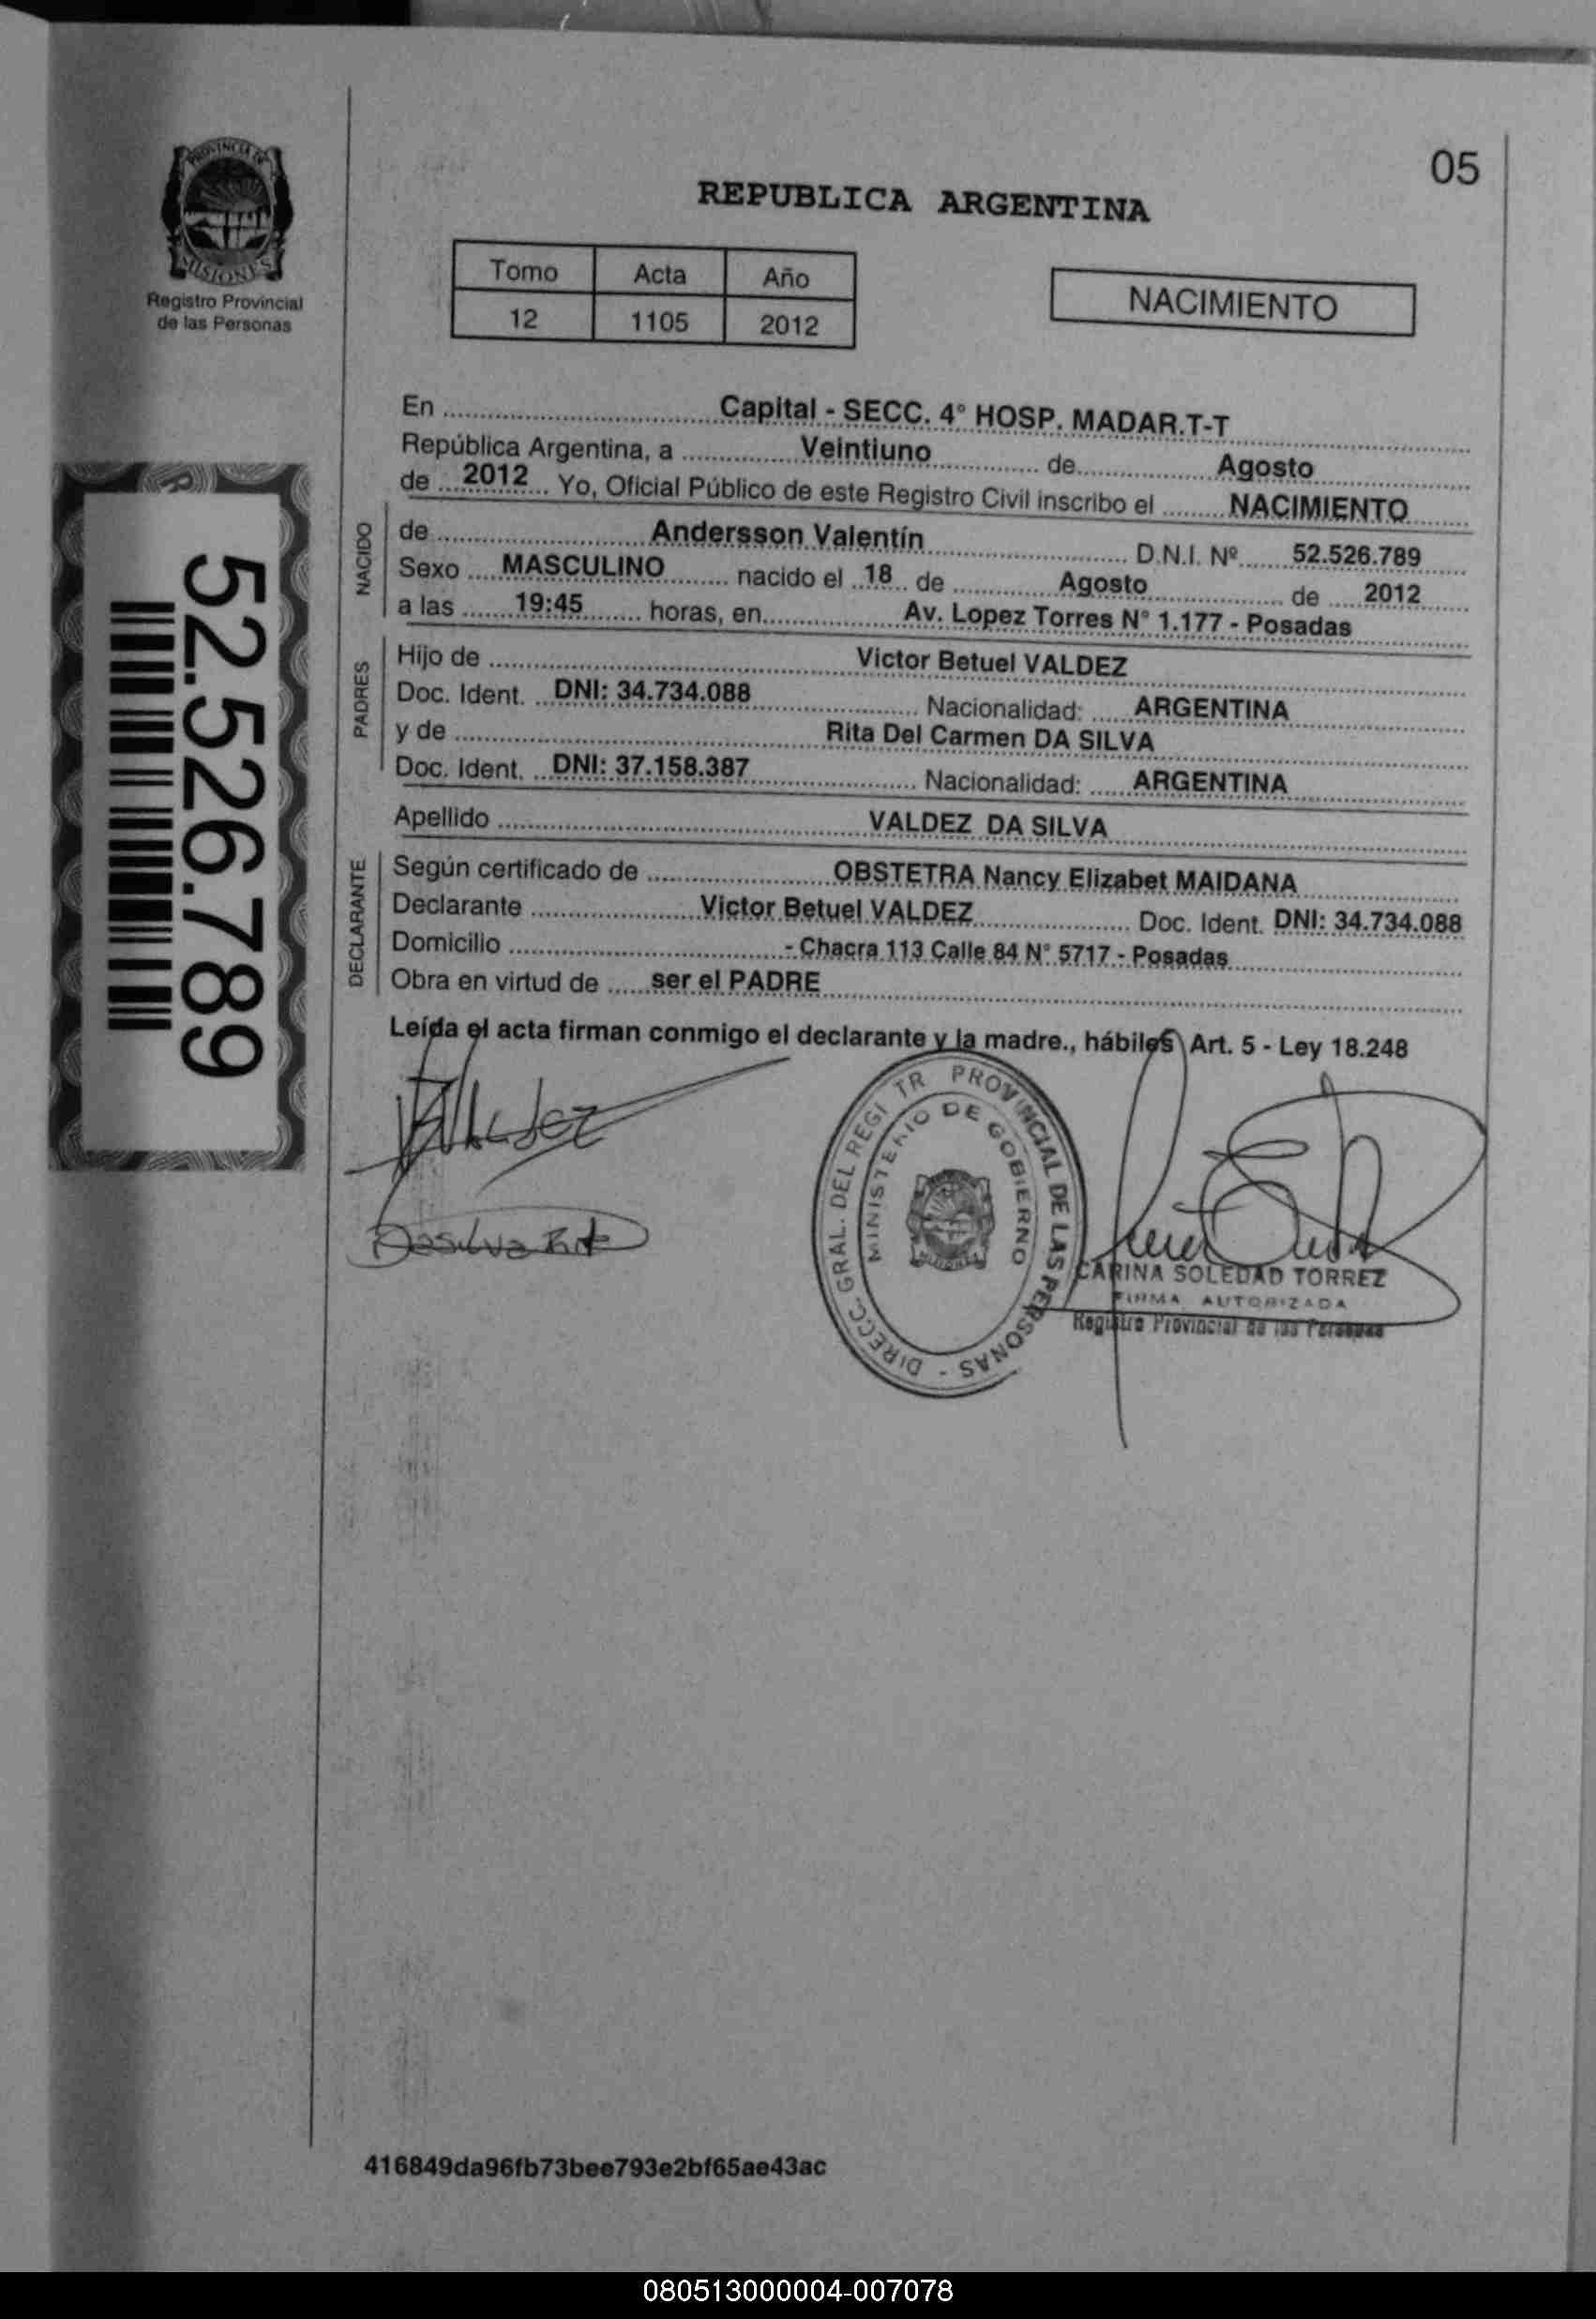 PROVINCIA DE
MISIONES
Registro Provincial
de las Personas
05
REPUBLICA ARGENTINA
Tomo Acta Año
12 1105 2012
NACIMIENTO
En Capital - SECC. 4° HOSP. MADAR.T-T
República Argentina, a Veintiuno de Agosto
de 2012 Yo, Oficial Público de este Registro Civil inscribo el NACIMIENTO
NACIDO
de Andersson Valentín D.N.I. Nº 52.526.789
Sexo MASCULINO nacido el 18 de Agosto de 2012
a las 19:45 horas, en Av. Lopez Torres N° 1.177 - Posadas
PADRES
Hijo de Victor Betuel VALDEZ
Doc. Ident. DNI: 34.734.088 Nacionalidad: ARGENTINA
y de Rita Del Carmen DA SILVA
Doc. Ident. DNI: 37.158.387 Nacionalidad: ARGENTINA
Apellido VALDEZ DA SILVA
DECLARANTE
Según certificado de OBSTETRA Nancy Elizabet MAIDANA
Declarante Victor Betuel VALDEZ Doc. Ident. DNI: 34.734.088
Domicilio - Chacra 113 Calle 84 N° 5717 - Posadas
Obra en virtud de ser el PADRE
Leída el acta firman conmigo el declarante y la madre., hábiles Art. 5 - Ley 18.248
52.526.789
Valdez
Dasilva Rita
DIRECC. GRAL. DEL REGI TR PROVINCIAL DE LAS PERSONAS -
MINISTERIO DE GOBIERNO
MISIONES
CARINA SOLEDAD TORREZ
FIRMA AUTORIZADA
Registro Provincial de las Personas
416849da96fb73bee793e2bf65ae43ac
080513000004-007078